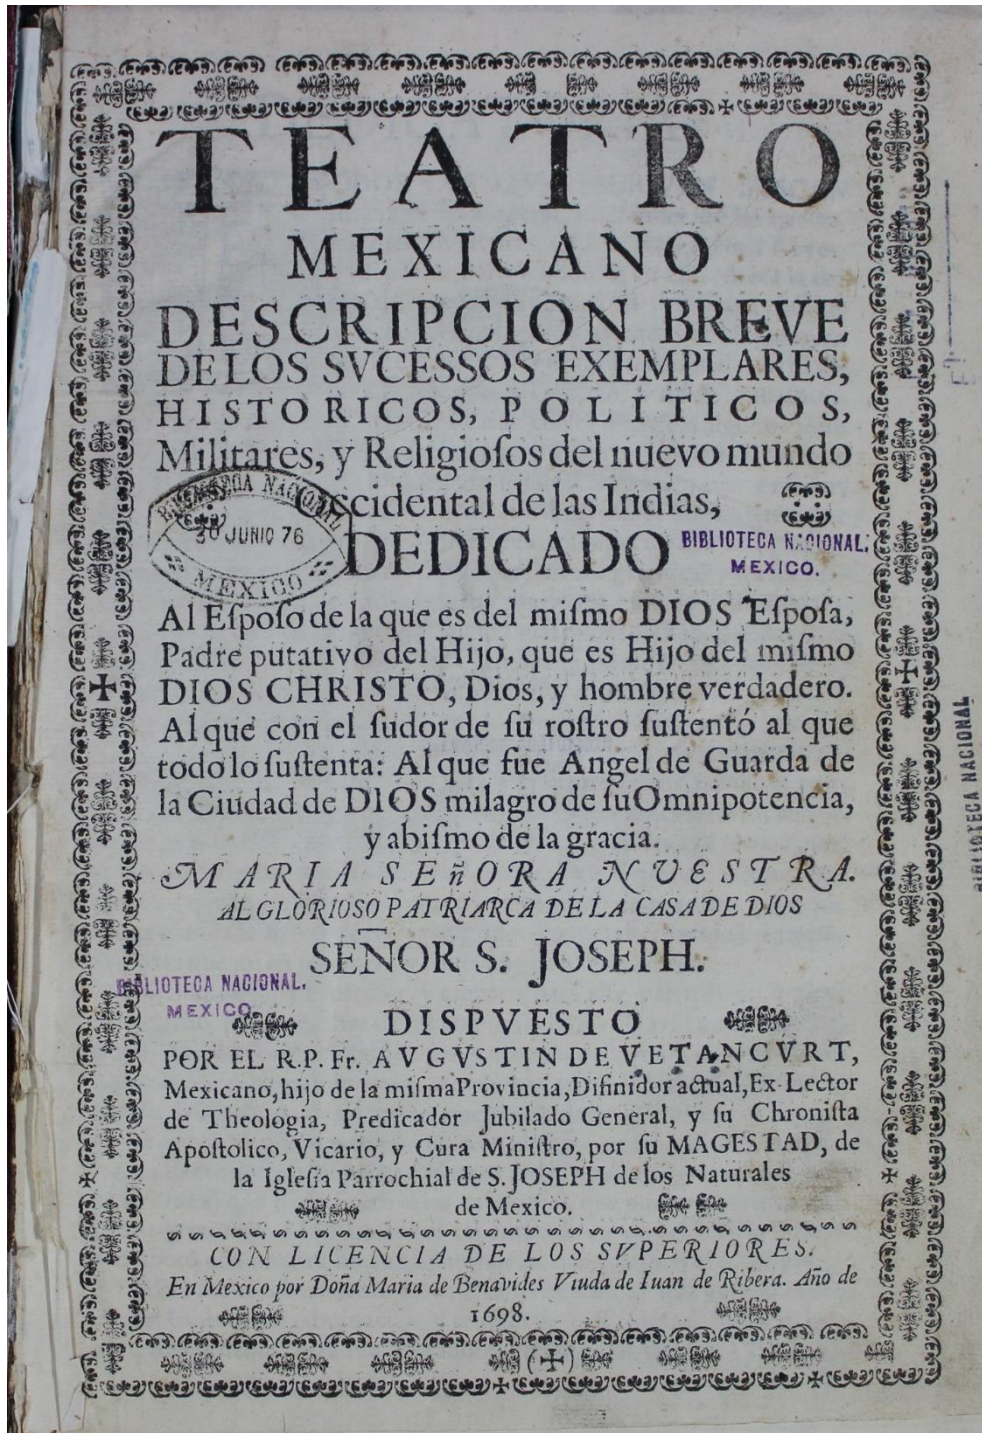 TEATRO
MEXICANO
DESCRIPCION BREVE
DE LOS SVCESSOS EXEMPLARES,
HISTORICOS, POLITICOS,
Militares, y Religioſos del nuevo mundo
ccidental de las Indias,
BIBLIOTECA NACIONAL
30 JUNIO 76
MEXICO
DEDICADO
BIBLIOTECA NACIONAL.
MEXICO.
Al Eſpoſo de la que es del miſmo DIOS Eſpoſa,
Padre putativo del Hijo, que es Hijo del miſmo
DIOS CHRISTO, Dios, y hombre verdadero.
Al que con el ſudor de ſu roſtro ſuſtentó al que
todo lo ſuſtenta: Al que fue Angel de Guarda de
la Ciudad de DIOS milagro de ſu Omnipotencia,
y abiſmo de la gracia.
MARIA SEñORA NVESTRA.
AL GLORIOSO PATRIARCA DE LA CASA DE DIOS
SEÑOR S. JOSEPH.
BIBLIOTECA NACIONAL.
MEXICO
DISPVESTO
POR EL R.P. Fr. AVGVSTIN DE VETANCVRT,
Mexicano, hijo de la miſma Provincia, Difinidor actual, Ex-Lector
de Theologia, Predicador Jubilado General, y ſu Chroniſta
Apoſtolico, Vicario, y Cura Miniſtro, por ſu MAGESTAD, de
la Igleſia Parrochial de S. JOSEPH de los Naturales
de Mexico.
CON LICENCIA DE LOS SVPERIORES.
En Mexico por Doña Maria de Benavides Viuda de Iuan de Ribera. Año de
1698.
BIBLIOTECA NACIONAL